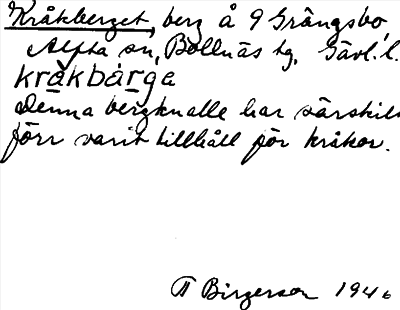 Kråkberget, berg å 9 Grängsbo
Alfta sn, Bollnäs tg, Gävl. l.
kråkbärga
Denna bergknalle har särskilt
förr varit tillhåll för kråkor.
Birgerson 1946